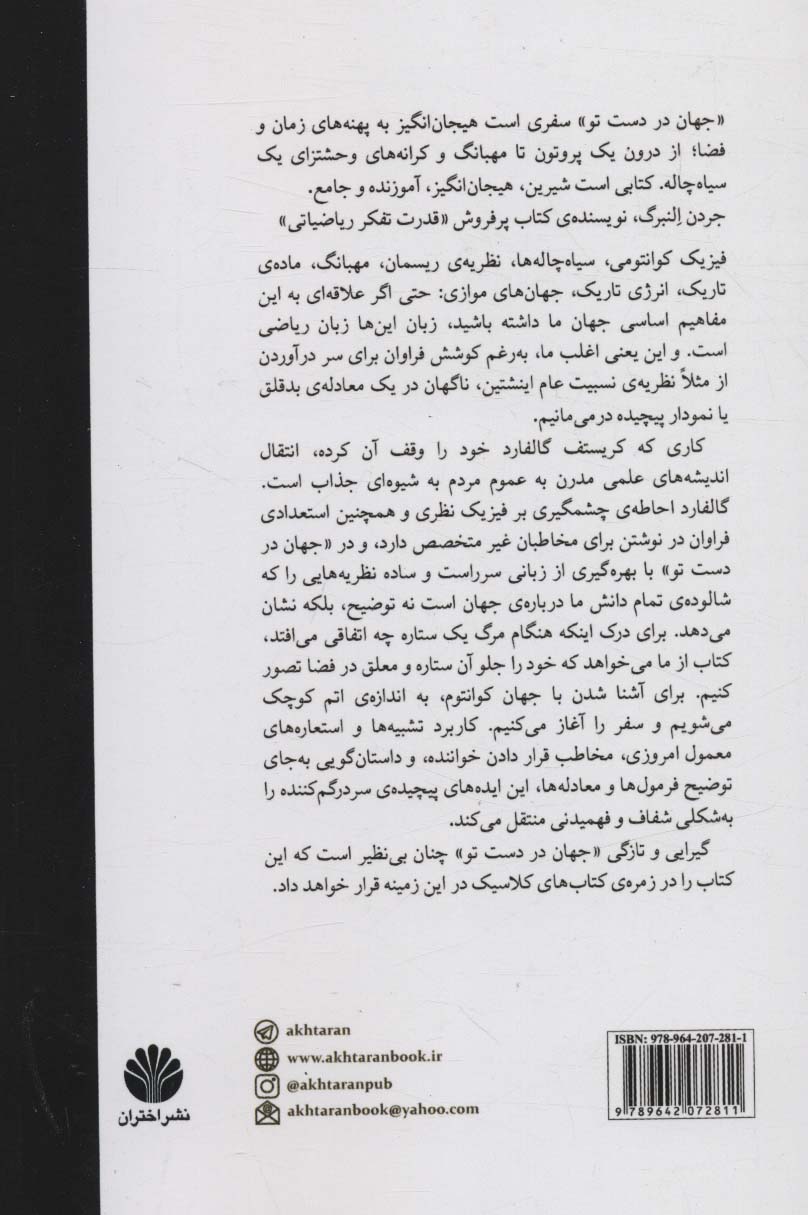 «جهان در دست تو» سفری است هیجان‌انگیز به پهنه‌های زمان و
فضا؛ از درون یک پروتون تا مهبانگ و کرانه‌های وحشتزای یک
سیاه‌چاله. کتابی است شیرین، هیجان‌انگیز، آموزنده و جامع.
جردن اِلنبرگ، نویسنده‌ی کتاب پرفروش «قدرت تفکر ریاضیاتی»
فیزیک کوانتومی، سیاه‌چاله‌ها، نظریه‌ی ریسمان، مهبانگ، ماده‌ی
تاریک، انرژی تاریک، جهان‌های موازی: حتی اگر علاقه‌ای به این
مفاهیم اساسی جهان ما داشته باشید، زبان این‌ها زبان ریاضی
است. و این یعنی اغلب ما، به‌رغم کوشش فراوان برای سر درآوردن
از مثلاً نظریه‌ی نسبیت عام اینشتین، ناگهان در یک معادله‌ی بدقلق
یا نمودار پیچیده درمی‌مانیم.
کاری که کریستف گالفارد خود را وقف آن کرده، انتقال
اندیشه‌های علمی مدرن به عموم مردم به شیوه‌ای جذاب است.
گالفارد احاطه‌ی چشمگیری بر فیزیک نظری و همچنین استعدادی
فراوان در نوشتن برای مخاطبان غیر متخصص دارد، و در «جهان در
دست تو» با بهره‌گیری از زبانی سرراست و ساده نظریه‌هایی را که
شالوده‌ی تمام دانش ما درباره‌ی جهان است نه توضیح، بلکه نشان
می‌دهد. برای درک اینکه هنگام مرگ یک ستاره چه اتفاقی می‌افتد،
کتاب از ما می‌خواهد که خود را جلو آن ستاره و معلق در فضا تصور
کنیم. برای آشنا شدن با جهان کوانتوم، به اندازه‌ی اتم کوچک
می‌شویم و سفر را آغاز می‌کنیم. کاربرد تشبیه‌ها و استعاره‌های
معمول امروزی، مخاطب قرار دادن خواننده، و داستان‌گویی به‌جای
توضیح فرمول‌ها و معادله‌ها، این ایده‌های پیچیده‌ی سردرگم‌کننده را
به‌شکلی شفاف و فهمیدنی منتقل می‌کند.
گیرایی و تازگی «جهان در دست تو» چنان بی‌نظیر است که این
کتاب را در زمره‌ی کتاب‌های کلاسیک در این زمینه قرار خواهد داد.
akhtaran
www.akhtaranbook.ir
@akhtaranpub
akhtaranbook@yahoo.com
نشر اختران
ISBN: 978-964-207-281-1
9 789642 072811